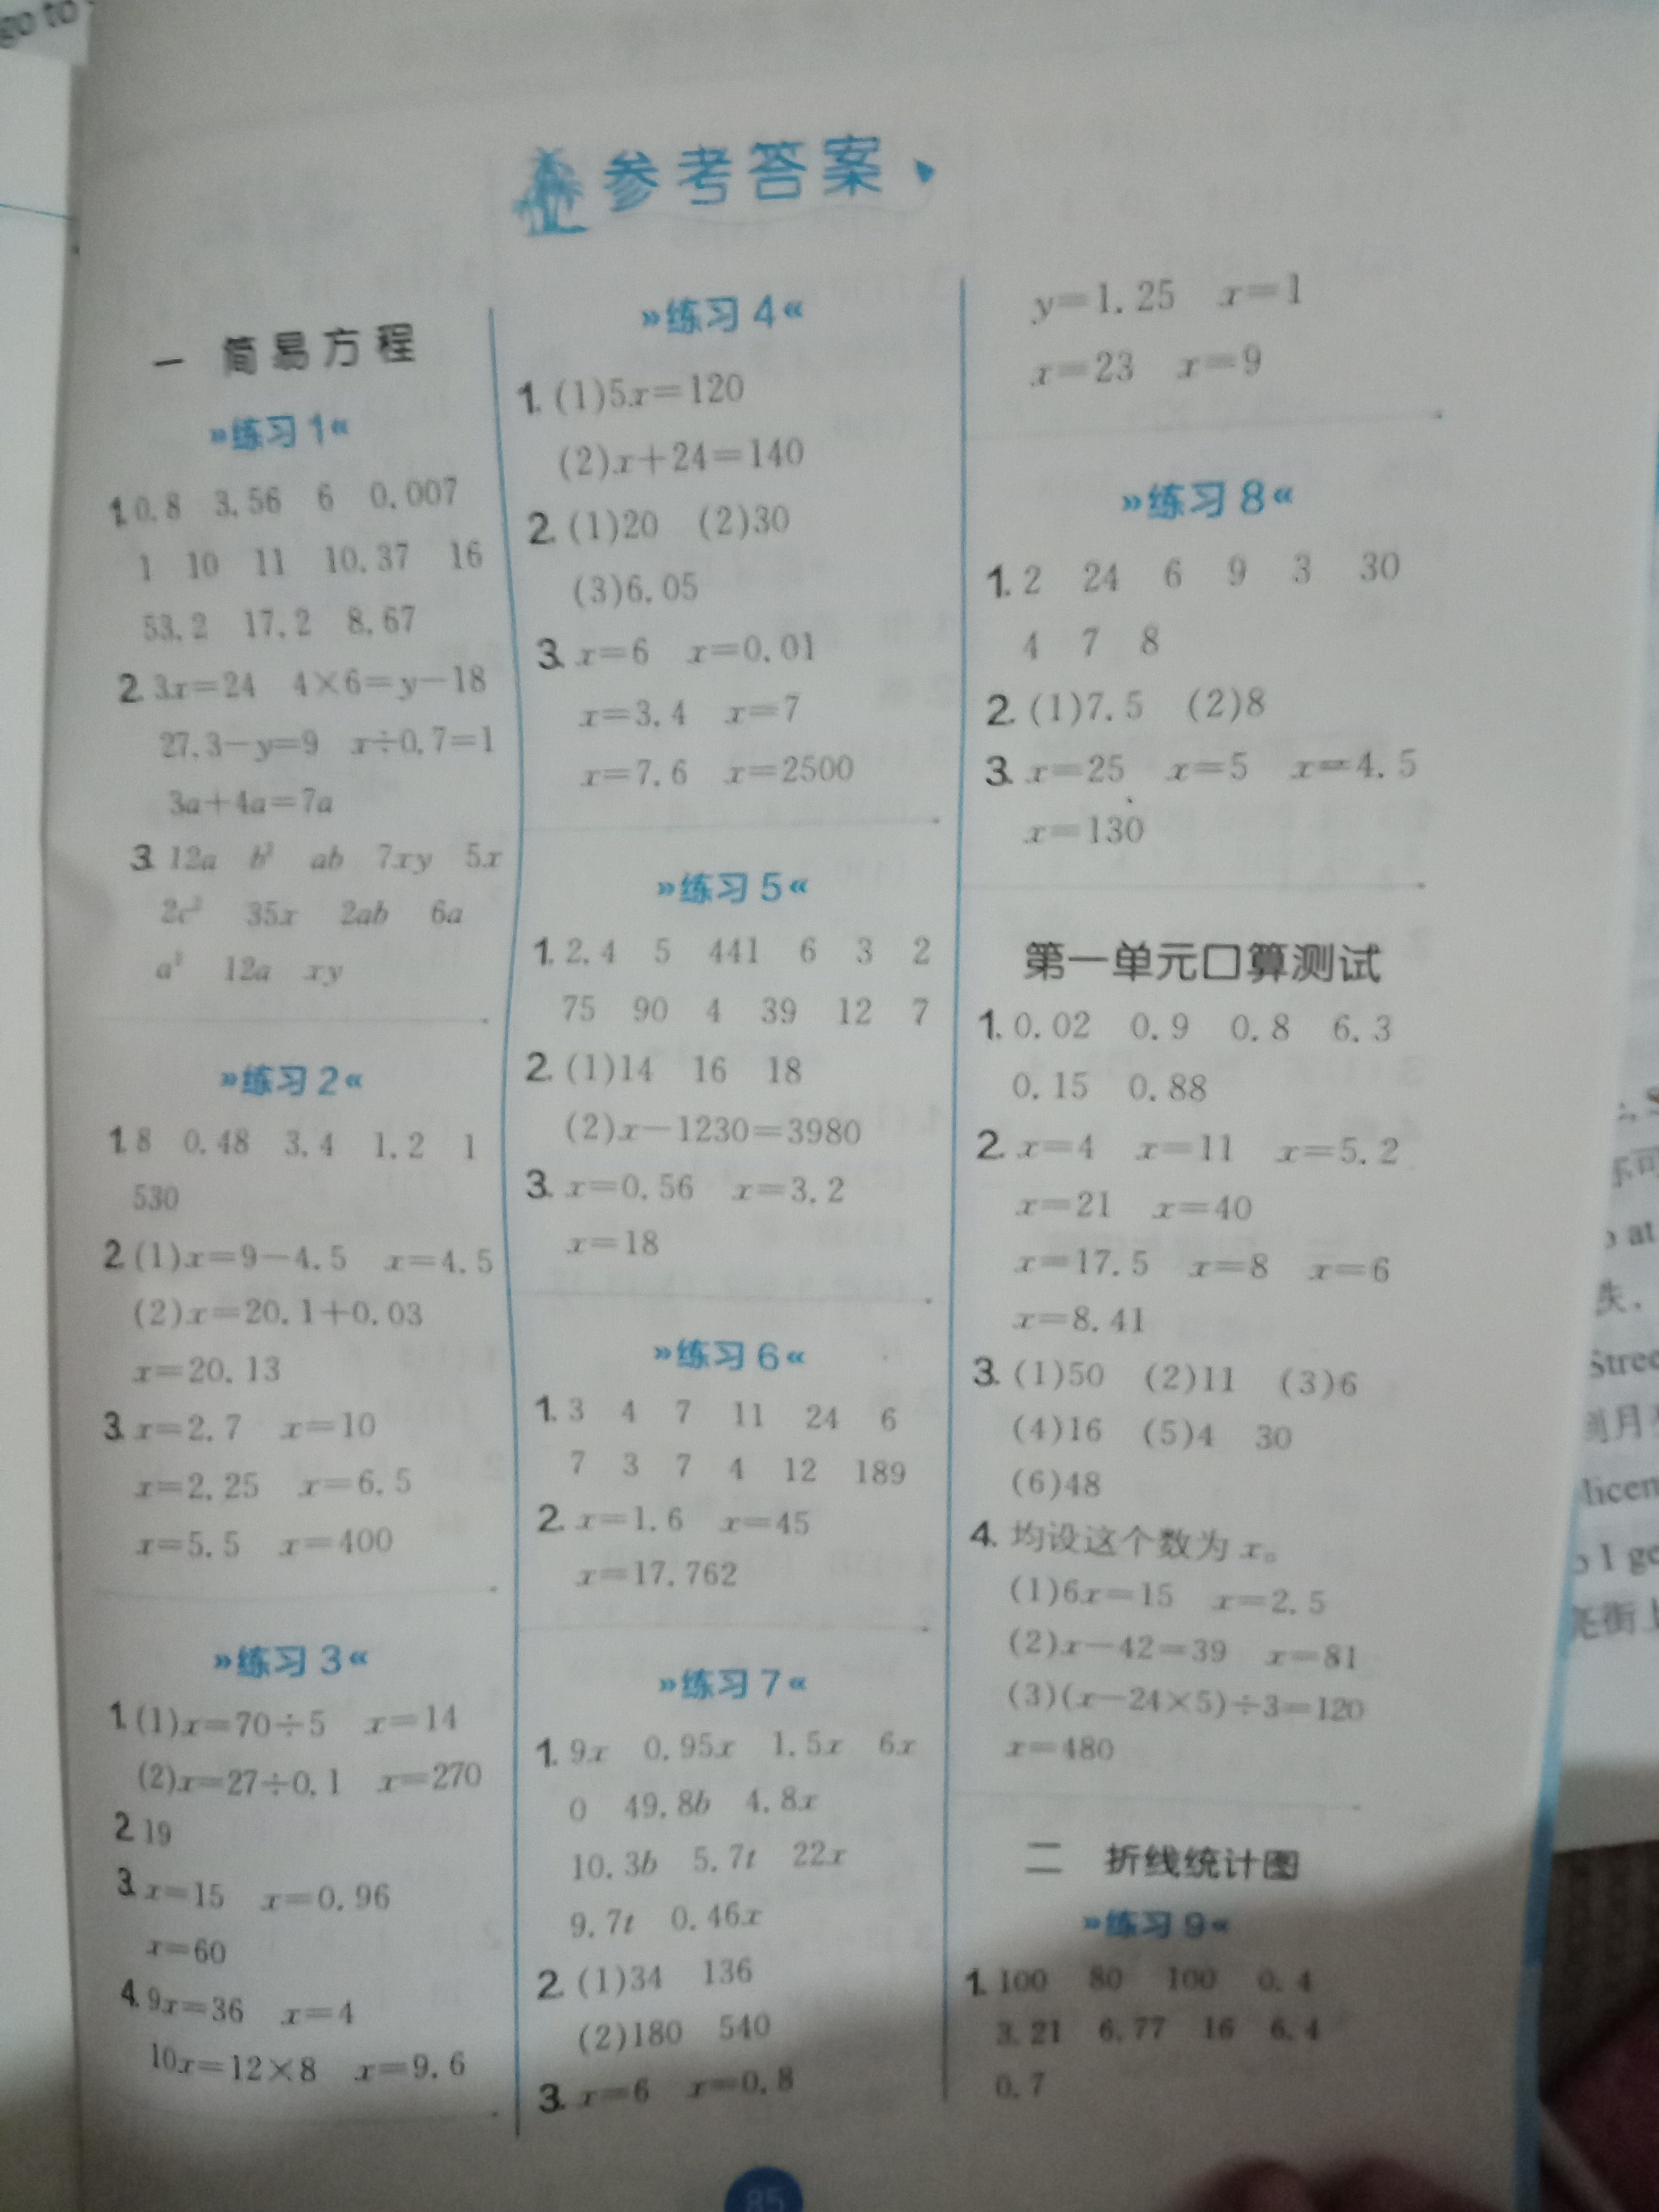 go to
参考答案
一 简易方程
»练习1«
1. 0.8 3.56 6 0.007
1 10 11 10.37 16
53.2 17.2 8.67
2. 3x=24 4×6=y−18
27.3−y=9 x÷0.7=1
3a+4a=7a
3. 12a b² ab 7xy 5x
2c² 35x 2ab 6a
a² 12a xy
»练习2«
1. 8 0.48 3.4 1.2 1
530
2. (1)x=9−4.5 x=4.5
(2)x=20.1+0.03
x=20.13
3. x=2.7 x=10
x=2.25 x=6.5
x=5.5 x=400
»练习3«
1. (1)x=70÷5 x=14
(2)x=27÷0.1 x=270
2. 19
3. x=15 x=0.96
x=60
4. 9x=36 x=4
10x=12×8 x=9.6
»练习4«
1. (1)5x=120
(2)x+24=140
2. (1)20 (2)30
(3)6.05
3. x=6 x=0.01
x=3.4 x=7
x=7.6 x=2500
»练习5«
1. 2.4 5 441 6 3 2
75 90 4 39 12 7
2. (1)14 16 18
(2)x−1230=3980
3. x=0.56 x=3.2
x=18
»练习6«
1. 3 4 7 11 24 6
7 3 7 4 12 189
2. x=1.6 x=45
x=17.762
»练习7«
1. 9x 0.95x 1.5x 6x
0 49.8b 4.8x
10.3b 5.7t 22x
9.7t 0.46x
2. (1)34 136
(2)180 540
3. x=6 x=0.8
y=1.25 x=1
x=23 x=9
»练习8«
1. 2 24 6 9 3 30
4 7 8
2. (1)7.5 (2)8
3. x=25 x=5 x=4.5
x=130
第一单元口算测试
1. 0.02 0.9 0.8 6.3
0.15 0.88
2. x=4 x=11 x=5.2
x=21 x=40
x=17.5 x=8 x=6
x=8.41
3. (1)50 (2)11 (3)6
(4)16 (5)4 30
(6)48
4. 均设这个数为x。
(1)6x=15 x=2.5
(2)x−42=39 x=81
(3)(x−24×5)÷3=120
x=480
二 折线统计图
»练习9«
1. 100 80 100 0.4
3.21 6.77 16 6.4
0.7
85
at
失.
Stree
I ge
街上